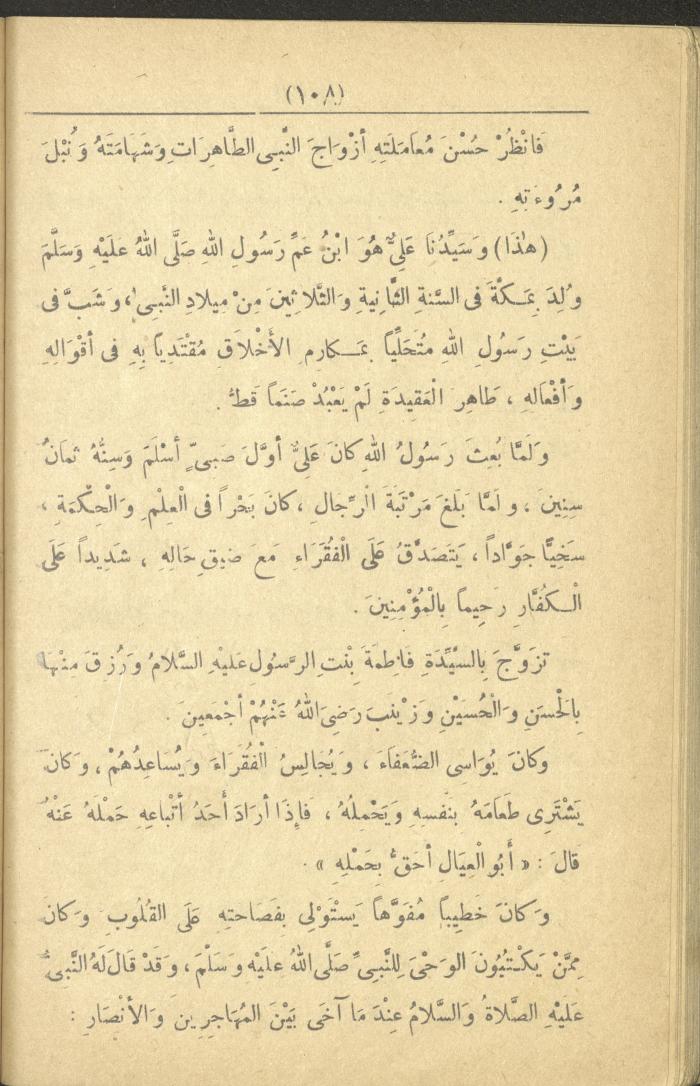 (١٠٨)
فَانْظُرْ حُسْنَ مُعَامَلَتِهِ أَزْوَاجَ النَّبِيِ الطَّاهِرَاتِ وَشَهَامَتَهُ وَنُبْلَ
مُرُوءَتِهِ .
(هٰذَا) وَسَيِّدُنَا عَلِيٌّ هُوَ ابْنُ عَمِّ رَسُولِ اللهِ صَلَّى اللهُ عَلَيْهِ وَسَلَّمَ
وُلِدَ بِمَكَّةَ فى السَّنةِ الثَّانِيةِ وَالثَّلَاثِينَ مِنْ مِيلادِ النَّبِىِ ، وَشَبَّ فى
بَيْتِ رَسُولِ اللهِ مُتَحَلِّيًا بمَكارم الأَخْلاَقِ مُقْتَدِيًا بِهِ فى أَقْوَالِهِ
وَأَفْعَالِهِ ، طَاهِرَ الْعَقِيدَةِ لَمْ يَعْبُدْ صَنَمًا قَطُّ .
وَلَمَّا بُعِثَ رَسُولُ اللهِ كَانَ عَلِيٌّ أَوَّلَ صَبىٍّ أَسْلَمَ وَسِنُّهُ ثَمَانُ
سِنِينَ ، وَلَمَّا بَلَغَ مَرْتَبَةَ الرِّجَالِ ، كَانَ بَحْرًا فى الْعِلْمِ وَالْحِكْمَةِ ،
سَخِيًّا جَوَّاداً ، يَتَصَدَّقُ عَلَى الْفُقَرَاءِ مَعَ ضِيقِ حَالِهِ ، شَدِيداً عَلَى
الْكُفَّارِ رَحِيماً بِالْمُؤْمِنِينَ .
تَزَوَّجَ بِالسَّيِّدَةِ فَاطِمَةَ بِنْتِ الرَّسُولِ عَلَيْهِ السَّلامُ وَرُزِقَ مِنْهَا
بِالْحَسَنِ وَالْحُسَيْنِ وَزَيْنَبَ رَضِىَ اللهُ عَنْهُمْ أَجْمَعِينَ .
وكَانَ يُوَاسِى الضُّعَفَاءَ ، وَيُجَالِسُ الْفُقَرَاءَ وَيُسَاعِدُهُمْ ، وَكَانَ
يَشْتَرِى طَعَامَهُ بِنَفْسِهِ وَيَحْمِلُهُ ، فَإِذَا أَرَادَ أَحَدُ أَتْبَاعِهِ حَمْلَهُ عَنْهُ
قَالَ : « أَبُو الْعِيَالِ أَحَقُّ بِحَمْلِهِ » .
وَكَانَ خَطِيباً مُفَوَّهاً يَسْتَوْلِى بِفَصَاحتِهِ عَلَى القُلُوبِ وَكَانَ
مِمَّنْ يَكْتُبُونَ الوَحْىَ لِلنَّبِىِّ صَلَّى اللهُ عَلَيْهِ وَسَلَّمَ ، وَقَدْ قَالَ لَهُ النَّبِىُّ
عَلَيْهِ الصَّلاَةُ وَالسَّلامُ عِنْدَ مَا آخَى بَيْنَ المُهَاجِرِينَ وَالأَنْصَارِ :